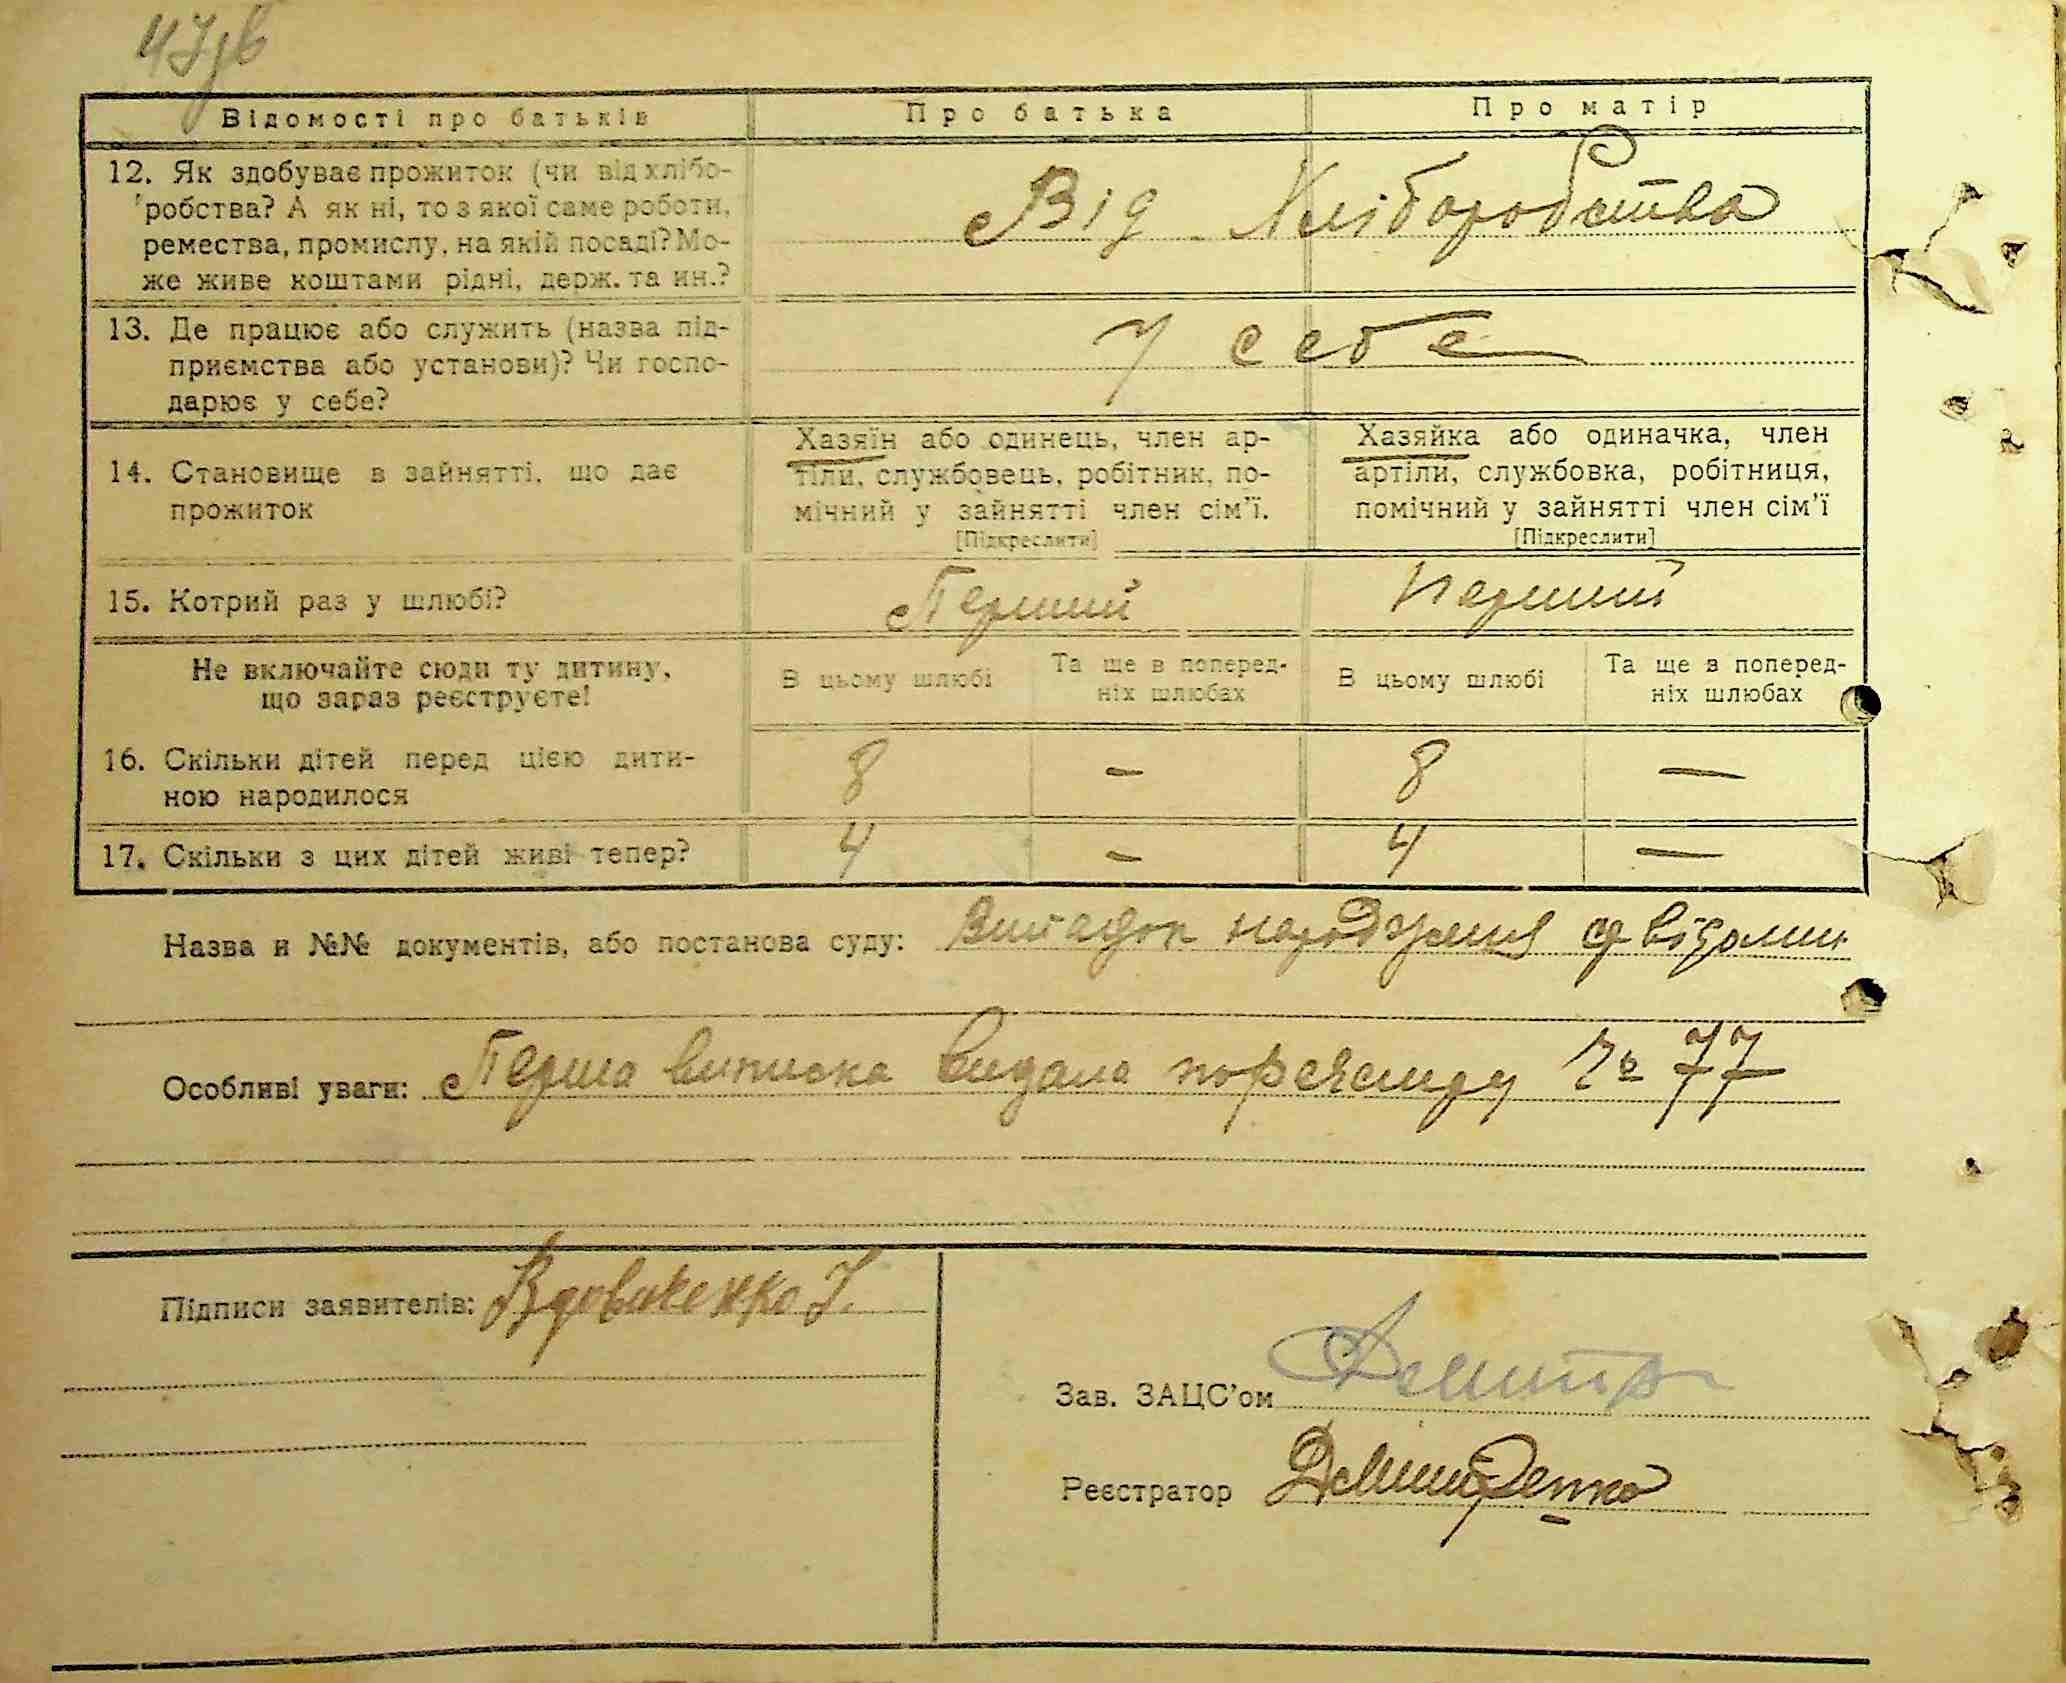 47зв
Відомості про батьків Про батька Про матір
12. Як здобуває прожиток (чи від хлібо-
робства? А як ні, то з якої саме роботи,
ремества, промислу, на якій посаді? Мо-
же живе коштами рідні, держ. та ин.?
Від Хліборобства
13. Де працює або служить (назва під-
приємства або установи)? Чи госпо-
дарює у себе?
У себе
14. Становище в зайнятті, що дає
прожиток
Хазяїн або одинець, член ар-
тіли, службовець, робітник, по-
мічний у зайнятті член сім'ї.
[Підкреслити]
Хазяйка або одиначка, член
артіли, службовка, робітниця,
помічний у зайнятті член сім'ї
[Підкреслити]
15. Котрий раз у шлюбі? Перший Перший
Не включайте сюди ту дитину,
що зараз реєструєте!
В цьому шлюбі
Та ще в поперед-
ніх шлюбах
В цьому шлюбі
Та ще в поперед-
ніх шлюбах
16. Скільки дітей перед цією дити-
ною народилося
8 – 8 –
17. Скільки з цих дітей живі тепер? 4 – 4 –
Назва и №№ документів, або постанова суду: народження
Особливі уваги: Перша виписка видана по реєстру № 77
Підписи заявителів: Вдовиченко І.
Зав. ЗАЦС'ом
Реєстратор Дмитренко